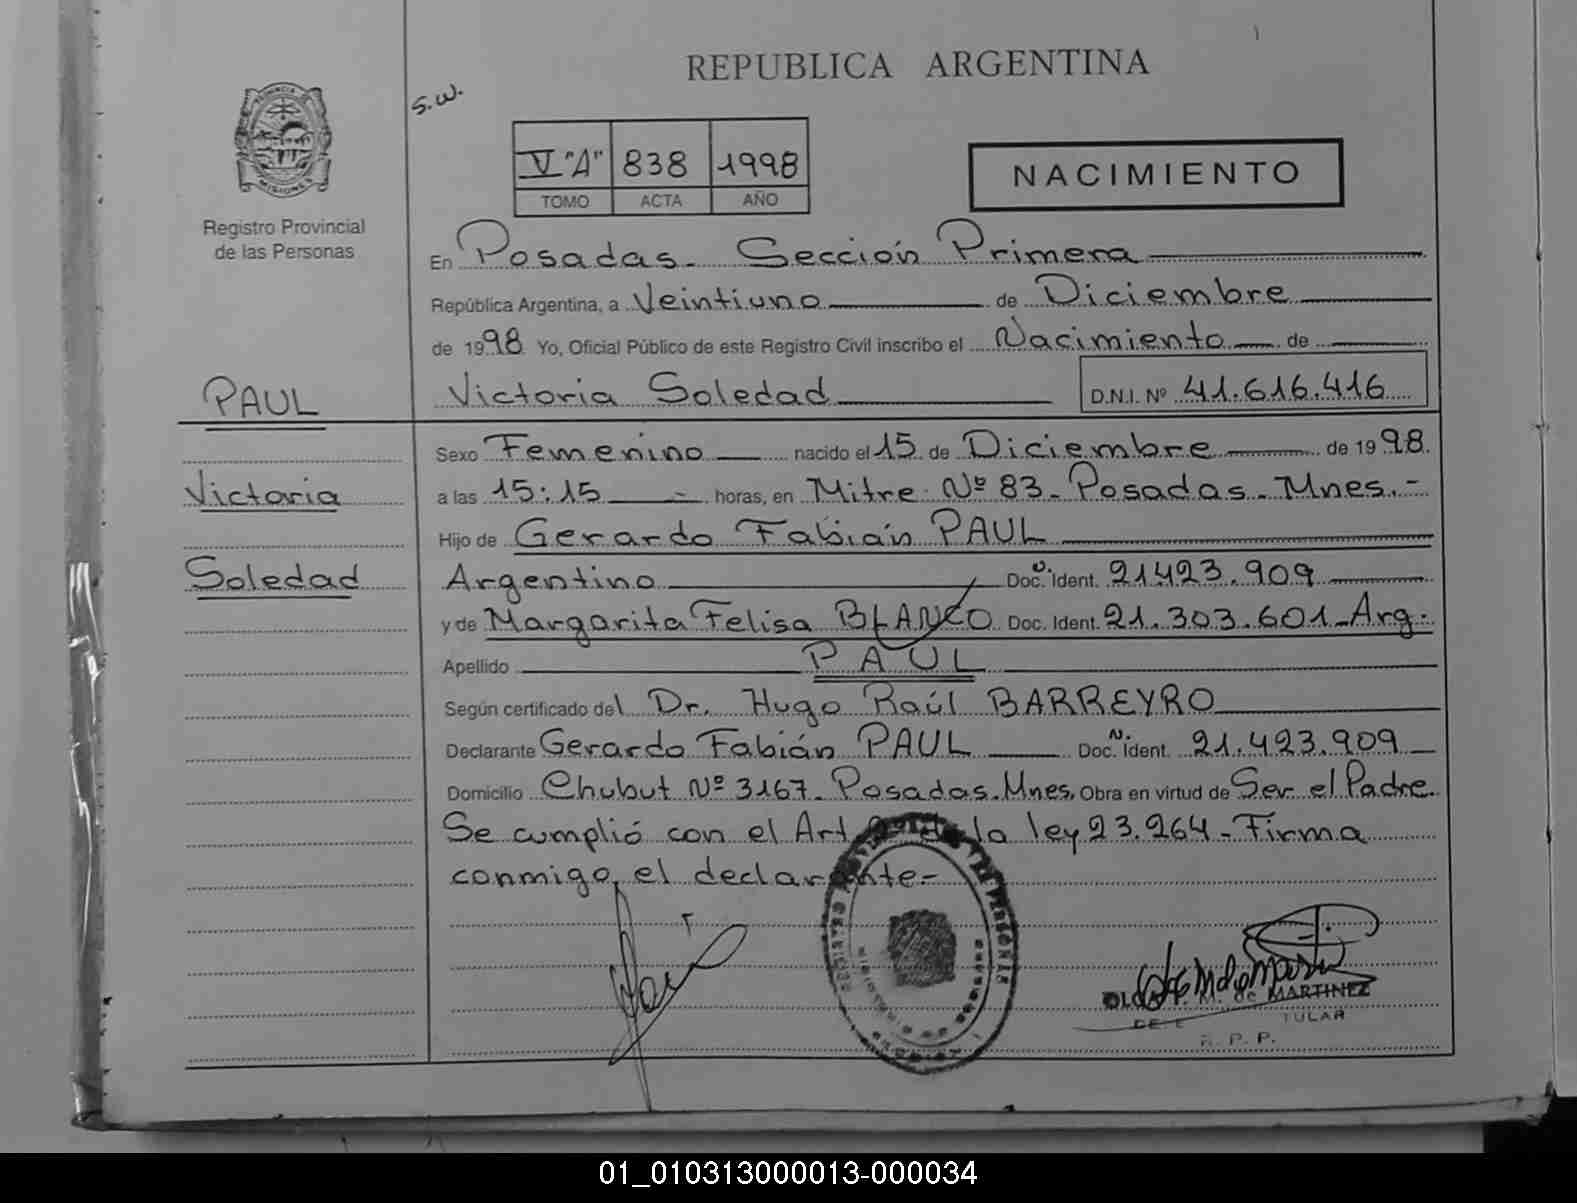 REPUBLICA ARGENTINA
S.W.
PROVINCIA DE
MISIONES
Registro Provincial
de las Personas
V "A" 838 1998
TOMO ACTA AÑO
NACIMIENTO
En Posadas. Sección Primera
República Argentina, a Veintiuno de Diciembre
de 1998 Yo, Oficial Público de este Registro Civil inscribo el Nacimiento de
Victoria Soledad D.N.I. Nº 41.616.416
PAUL
Victoria
Soledad
Sexo Femenino nacido el 15 de Diciembre de 1998.
a las 15:15 horas, en Mitre Nº 83. Posadas. Mnes.-
Hijo de Gerardo Fabián PAUL
Argentino Doc. Ident. 21423.909
y de Margarita Felisa BLANCO Doc. Ident. 21.303.601. Arg.
Apellido PAUL
Según certificado del Dr. Hugo Raúl BARREYRO
Declarante Gerardo Fabián PAUL Doc. Ident. 21.423.909
Domicilio Chubut Nº 3167. Posadas. Mnes. Obra en virtud de Ser el Padre.
Se cumplió con el Art la ley 23.264 - Firma
conmigo el declarante-
M. de MARTINEZ
R. P. P.
01_010313000013-000034